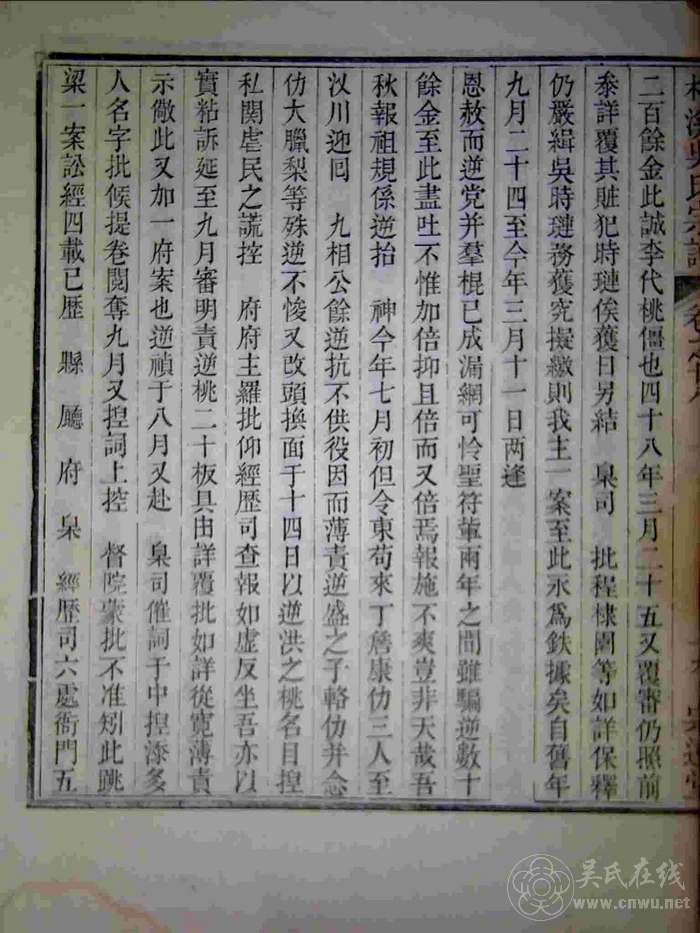 二百餘金此誠李代桃僵也四十八年三月二十五又覆審仍照前
叅詳覆其賍犯時璉俟獲日另結　臬司　批程棣園等如詳保釋
仍嚴緝吳時璉務獲究擬繳則我主一案至此永爲鉄據矣自舊年
九月二十四至今年三月十一日兩逢
恩赦而逆党并羣棍已成漏網可怜聖符輩兩年之間雖騙逆數十
餘金至此盡吐不惟加倍抑且倍而又倍焉報施不爽豈非天哉吾
秋報祖規係逆抬　神今年七月初但令東苟來丁詹康仂三人至
汊川迎囘　九相公餘逆抗不供役因而薄責逆盛之子輅仂并念
仂大臘梨等殊逆不悛又改頭換面于十四日以逆洪之桃名目揑
私関虐民之謊控　府府主羅批仰經歷司查報如虛反坐吾亦以
實粘訴延至九月審明責逆桃二十板具由詳覆批如詳從寬薄責
示儆此又加一府案也逆禎于八月又赴　臬司催詞于中揑添多
人名字批候提卷閱奪九月又揑詞上控　督院蒙批不准矧此跳
梁一案訟經四載已歷　縣　廳　府　臬　經歷司六處衙門五
吳氏在线
www.cnwu.net